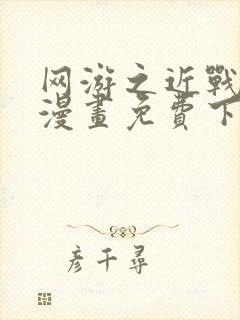 网游之近戰
漫畫免費下
彦千尋